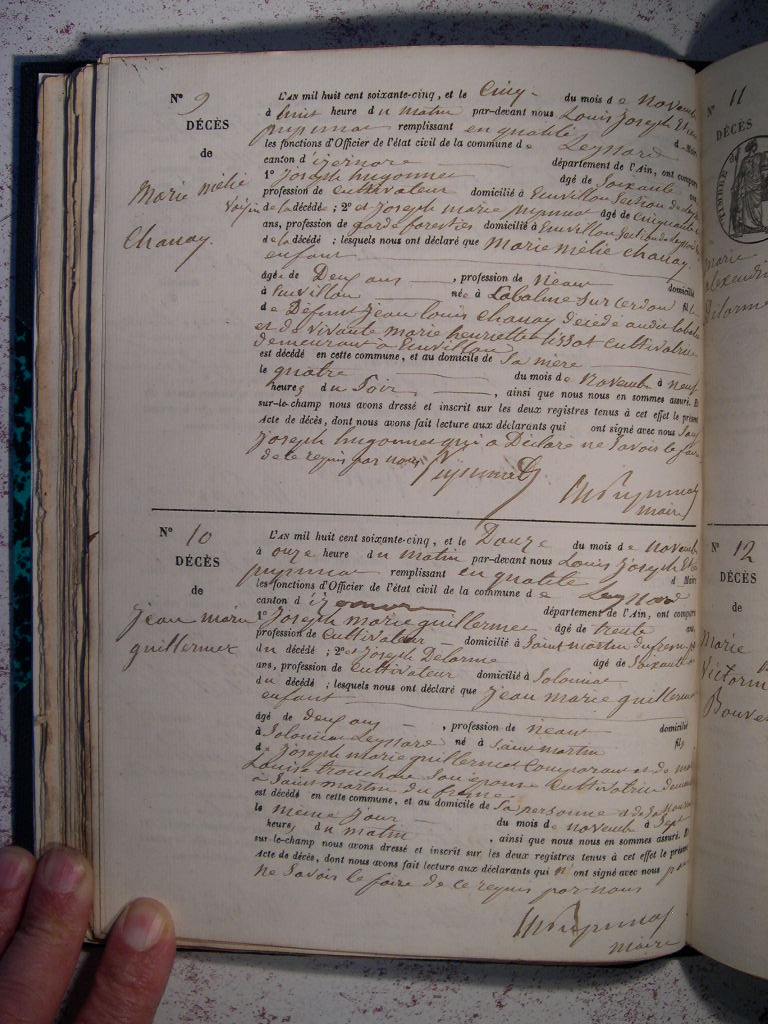 Nº 9
DÉCÈS
de
Marie mélie
Chanay.
L'AN mil huit cent soixante-cinq, et le Cinq du mois de Novemb
à huit heure du matin par-devant nous Louis Joseph
remplissant en qualité d Maire
les fonctions d'Officier de l'état civil de la commune de Leyssard
canton d'izernore département de l'Ain, ont compar
1º Joseph hugonnet âgé de Soixante
profession de Cultivateur domicilié à Emvillon Section de
Voisin de la décédée; 2º et Joseph marie âgé de Cinquante
ans, profession de garde forestier domicilié à Emvillon Section de
de la décédé; lesquels nous ont déclaré que Marie mélie chanay,
enfant
âgée de Deux ans, profession de néant domicilié
à Emvillon née à Labalme Sur Cerdon fil
de Défunt jean louis chanay décédé audit Labalme
et de vivante marie henriette tissot Cultivatrice
demeurant à Emvillon
est décédé en cette commune, et au domicile de Sa mère
le quatre du mois de Novembre à neuf
heures du Soir, ainsi que nous nous en sommes assuré. Et
sur-le-champ nous avons dressé et inscrit sur les deux registres tenus à cet effet le présent
Acte de décès, dont nous avons fait lecture aux déclarants qui ont signé avec nous
joseph hugonnet qui a Déclaré ne Savoir le faire
de ce requis par nous
maire
Nº 10
DÉCÈS
de
jean marie
guillermet
L'AN mil huit cent soixante-cinq, et le Douze du mois de novemb
à onze heure du matin par-devant nous Louis Joseph
remplissant en qualité d Maire
les fonctions d'Officier de l'état civil de la commune de Leyssard
canton d'izernore département de l'Ain, ont compar
1º Joseph marie guillermet âgé de trente ans,
profession de Cultivateur domicilié à Saint martin du frene
du décédé; 2º et Joseph Delorme âgé de Soixante
ans, profession de Cultivateur domicilié à Solomiat
du décédé; lesquels nous ont déclaré que jean marie guillermet
enfant
âgé de deux ans, profession de néant domicilié
à Solomiat Leyssard né à Saint martin fils
de joseph marie guillermet Comparant et de
Louise Son épouse Cultivatrice
à Saint martin du frene
est décédé en cette commune, et au domicile de Sa personne
le même jour du mois de novembre à Sept
heures du matin, ainsi que nous nous en sommes assuré. Et
sur-le-champ nous avons dressé et inscrit sur les deux registres tenus à cet effet le présent
Acte de décès, dont nous avons fait lecture aux déclarants qui n'ont signé avec nous
ne Savoir le faire de ce requis par nous
maire
Nº 11
DÉCÈS
TIMBRE
marie
alexendri
Delorme
Nº 12
DÉCÈS
de
Marie
Victorin
Bouve